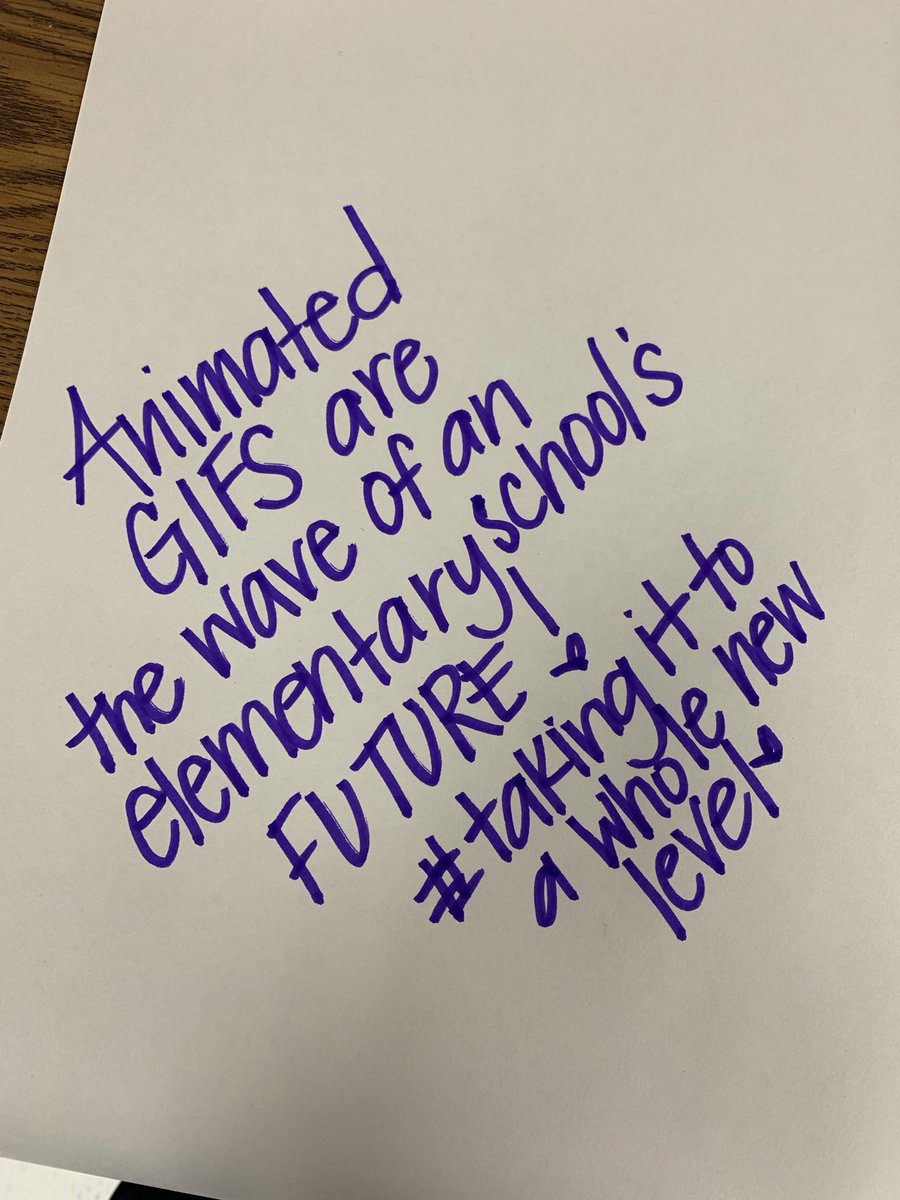 Animated
GIFS are
the wave of an
elementary school's
FUTURE!
#taking it to
a whole new
level